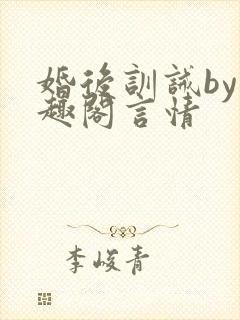 婚後訓誡by
趣閣言情
李峻青